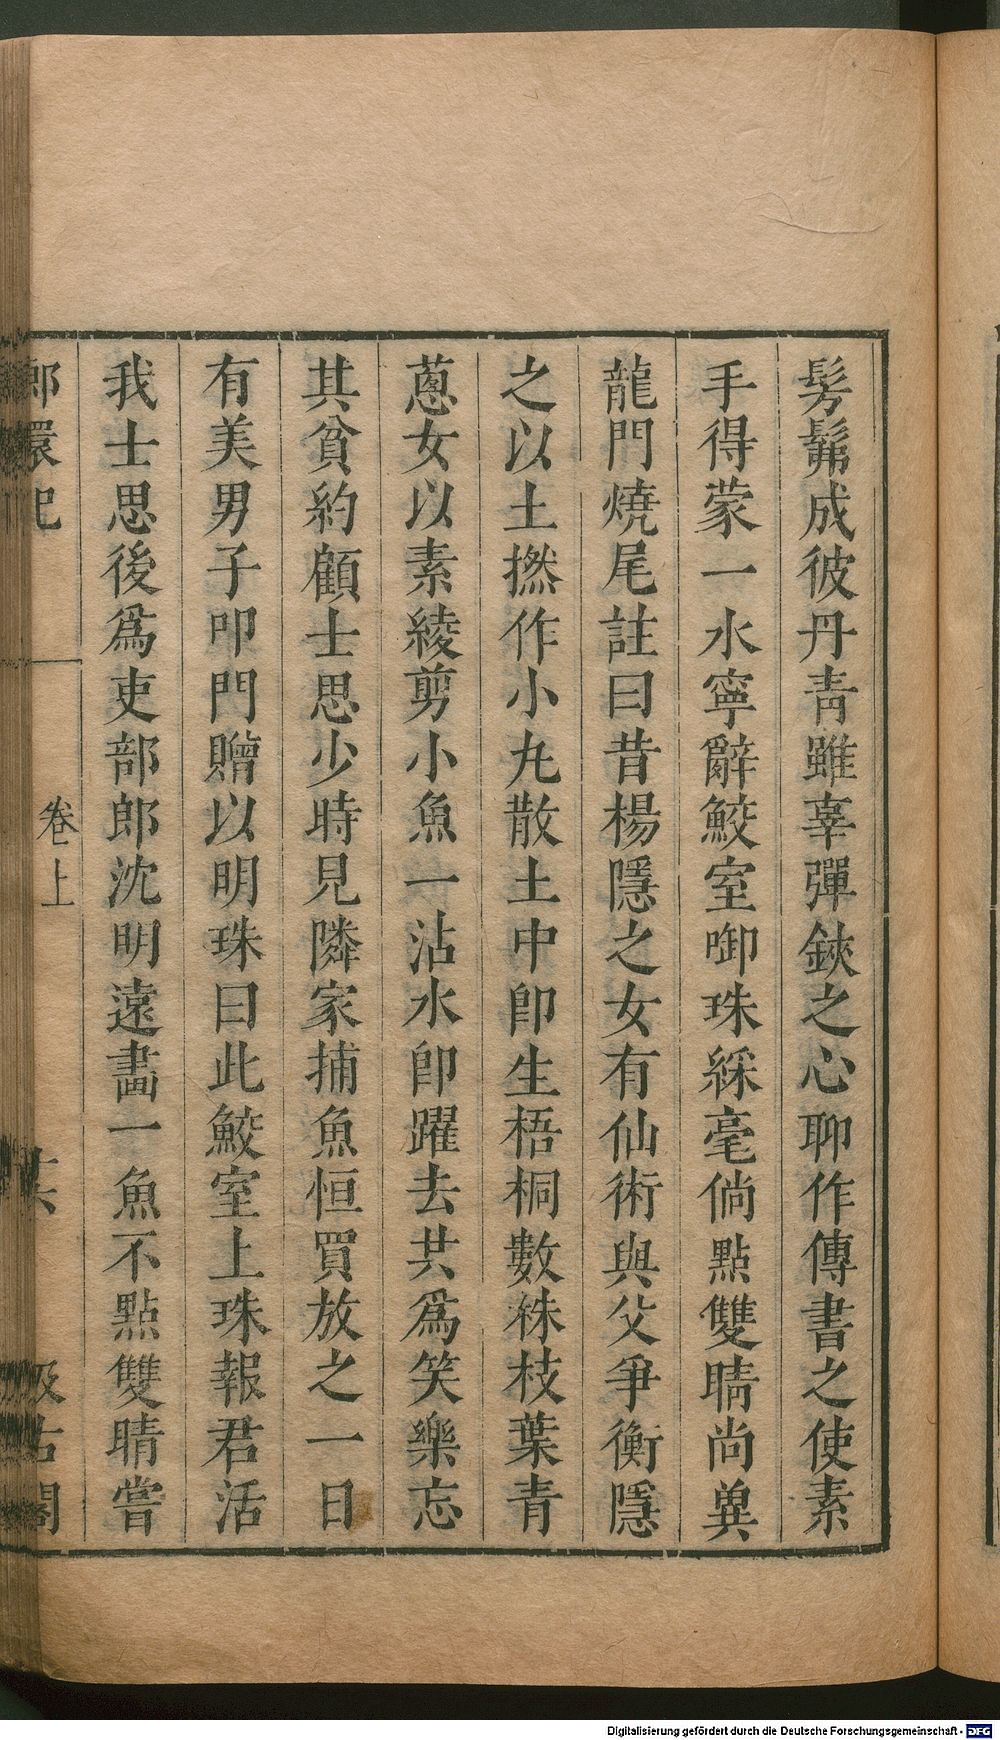 髣髴成彼丹靑雖辜彈鋏之心聊作傳書之使素
手得蒙一水寧辭鮫室啣珠綵毫倘點雙睛尚兾
龍門燒尾註曰昔楊隱之女有仙術與父爭衡隱
之以土撚作小丸散土中卽生梧桐數株枝葉青
蔥女以素綾剪小魚一沾水卽躍去共爲笑樂忘
其貧約顧士思少時見隣家捕魚恒買放之一日
有美男子叩門贈以明珠曰此鮫室上珠報君活
我士思後爲吏部郎沈明遠畫一魚不點雙睛嘗
環記 卷上 十六 汲古閣
Digitalisierung gefördert durch die Deutsche Forschungsgemeinschaft - DFG